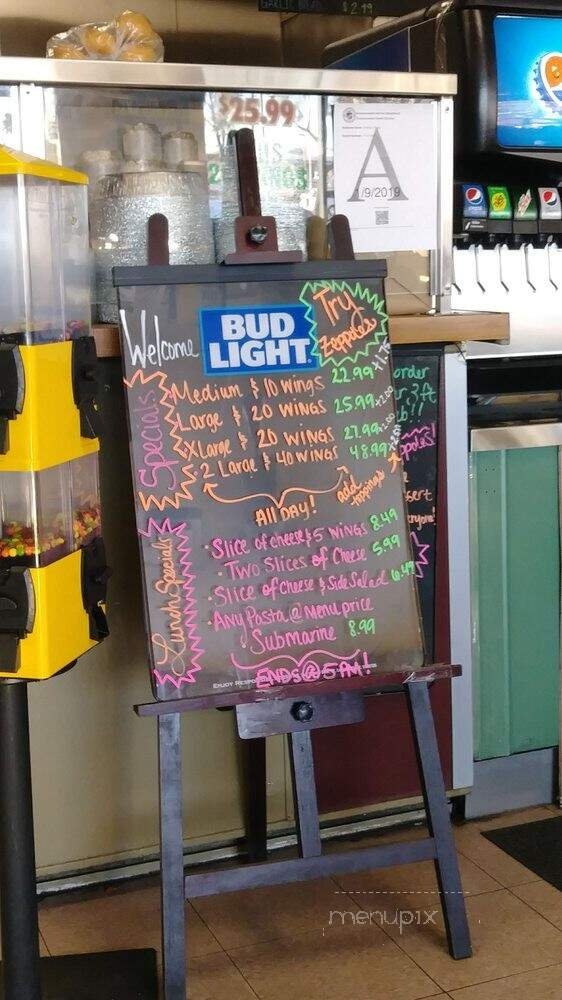 GARLIC $2.99
$25.99
A
1/9/2019
pepsi
Welcome
BUD
LIGHT
Try
Zeppoles
Specials
Medium & 10 Wings 22.99 +1.75
Large & 20 Wings 25.99 +2.00
XLarge & 20 Wings 27.99 +2.50
2 Large & 40 Wings 48.99 +2.00
All DAY!
add
toppings
Lunch Specials
• Slice of cheese & 5 Wings 8.49
• Two Slices of Cheese 5.99
• Slice of Cheese & Side Salad 6.49
• Any Pasta @ Menu price
• Submarine 8.99
ENDS @ 5 PM!
order
3ft
menupix